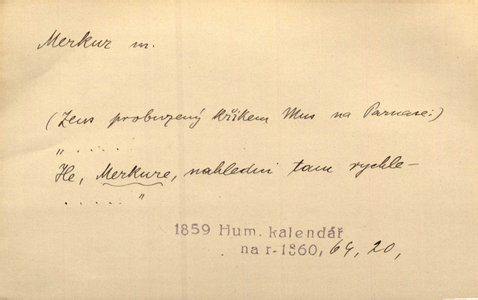 Merkur m.
(Zeus probuzený křikem Mus na Parnase:)
„ . . . . .
He, Merkure, nahledni tam rychle-
. . . . . "
1859 Hum. kalendář
na r. 1860, 64, 20,